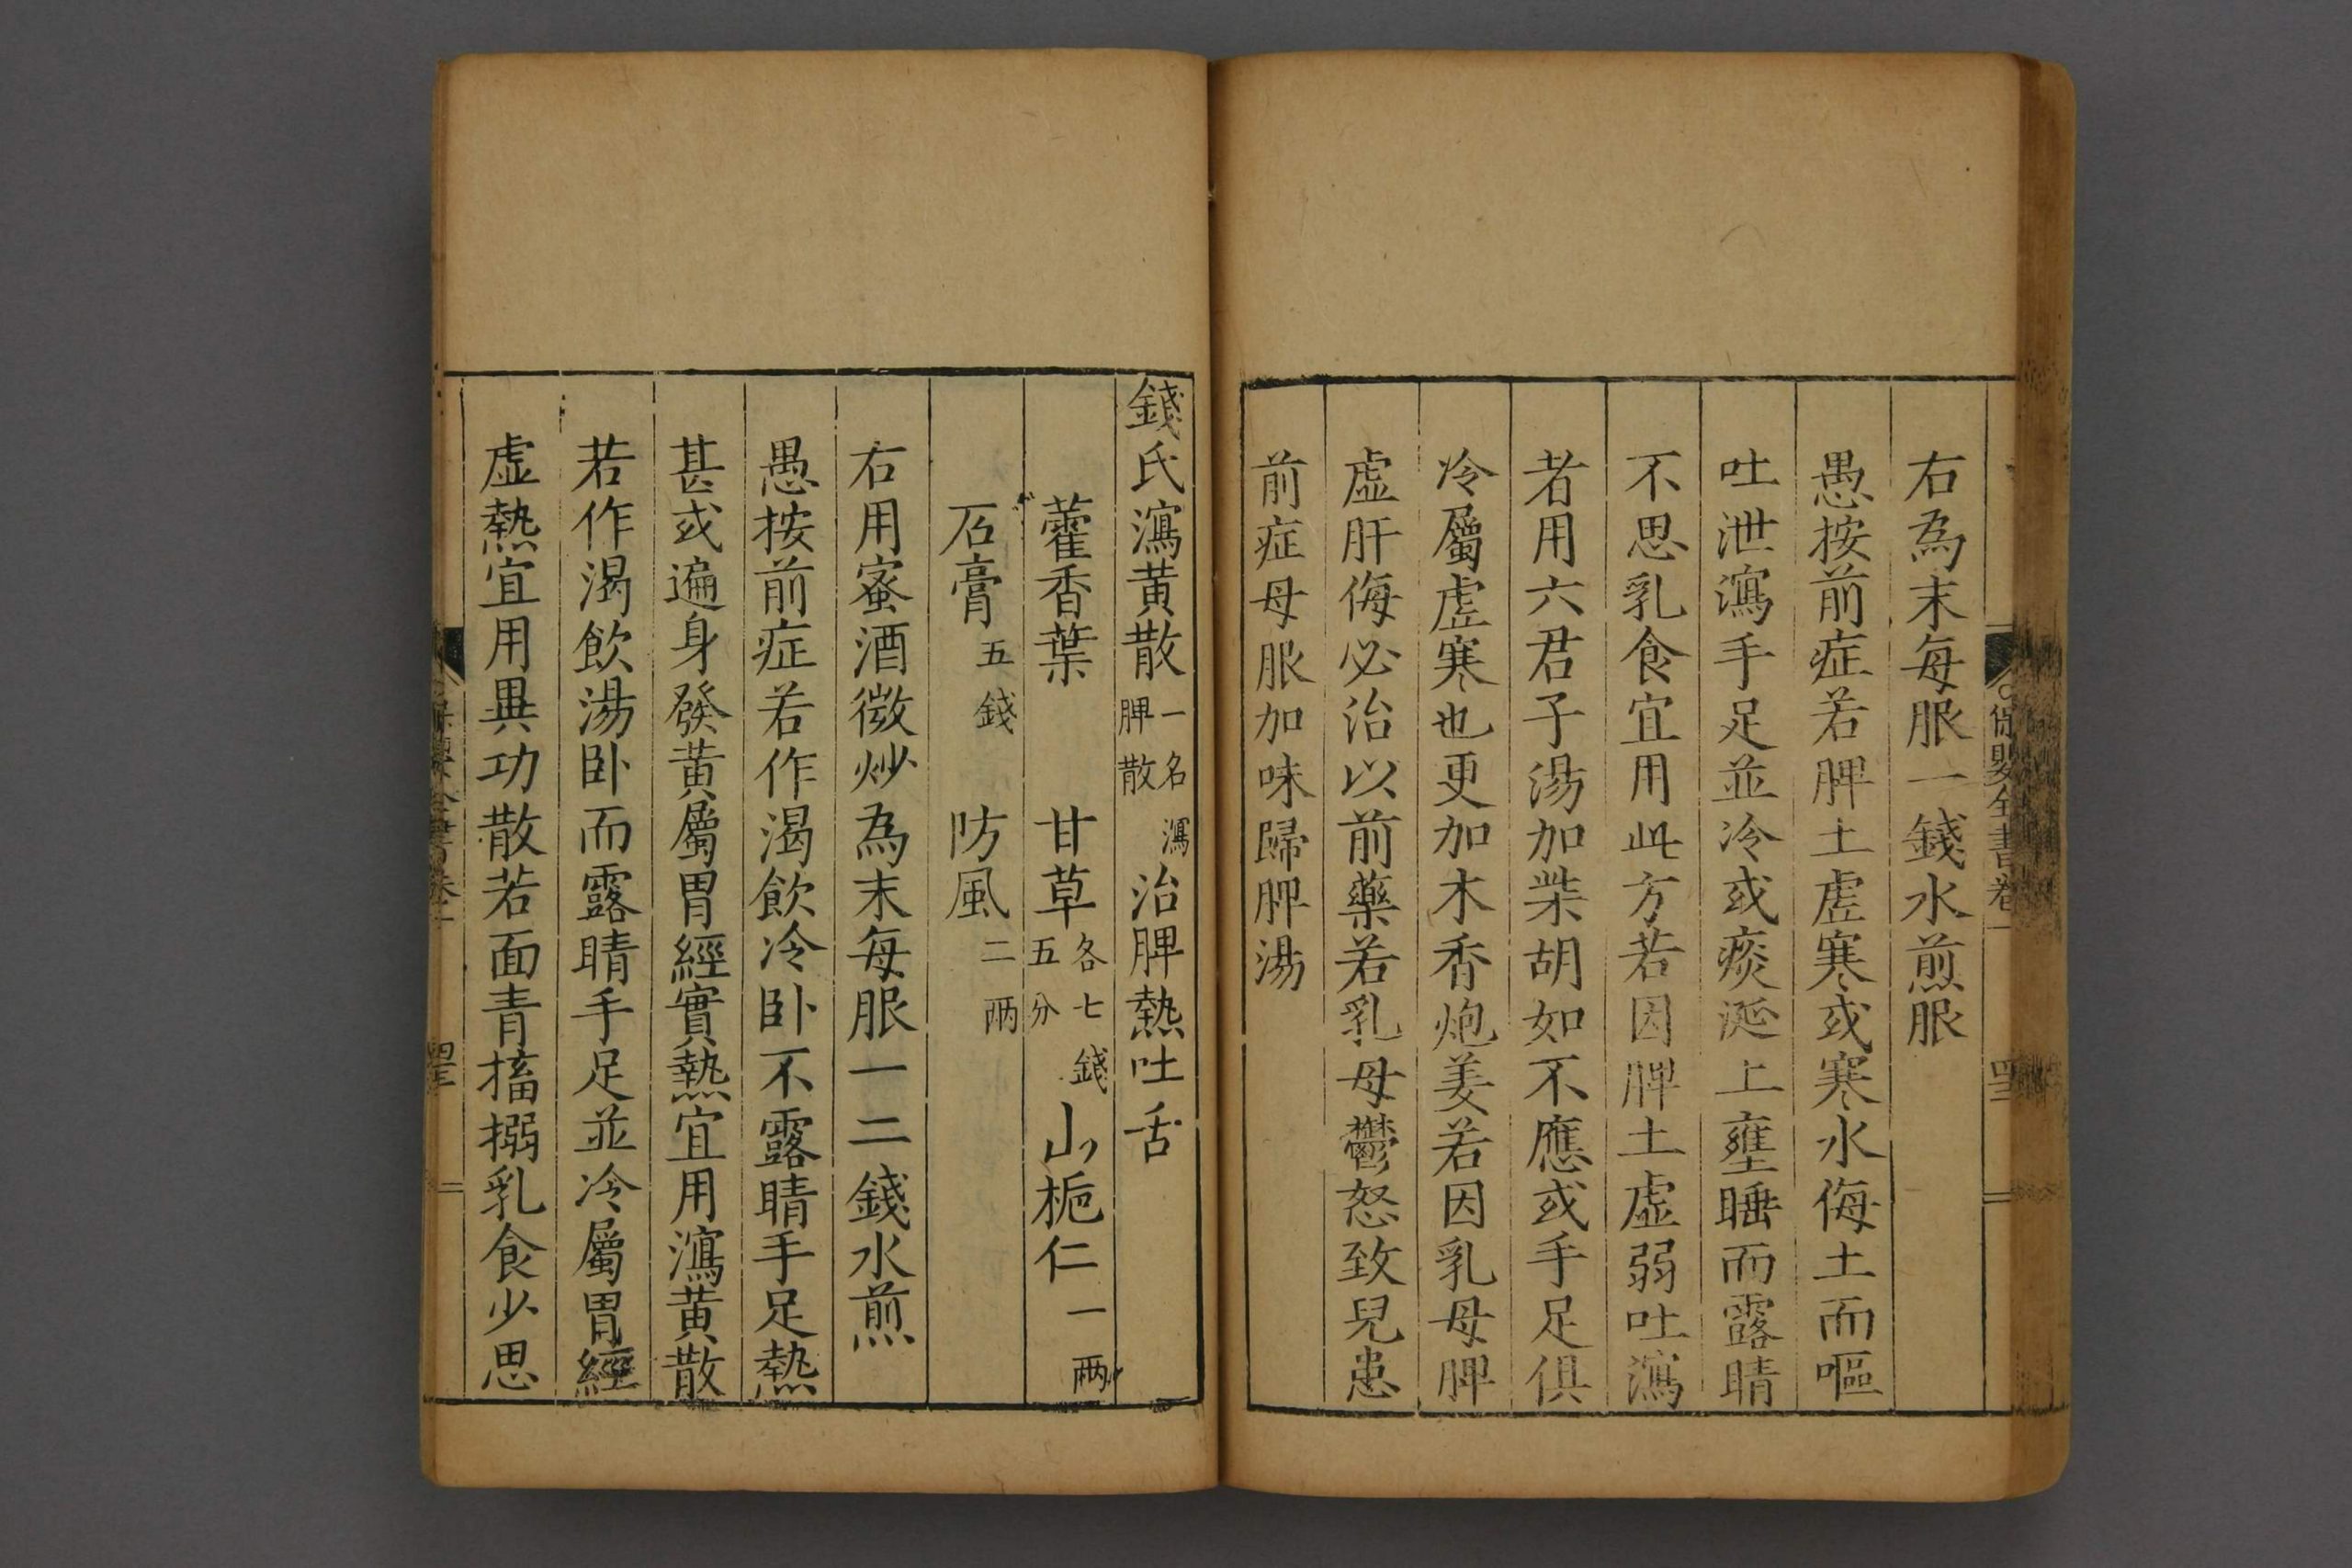 右為末每服一錢水煎服
愚按前症若脾土虛寒或寒水侮土而嘔
吐泄瀉手足並冷或痰涎上壅睡而露睛
不思乳食宜用此方若因脾土虛弱吐瀉
者用六君子湯加柴胡如不應或手足俱
冷屬虛寒也更加木香炮姜若因乳母脾
虛肝侮必治以前藥若乳母鬱怒致兒患
前症母服加味歸脾湯
錢氏瀉黃散一名瀉脾散治脾熱吐舌
藿香葉 甘草各七錢五分 山梔仁一兩
石膏五錢 防風二兩
右用蜜酒微炒為末每服一二錢水煎
愚按前症若作渴飲冷卧不露睛手足熱
甚或遍身發黃屬胃經實熱宜用瀉黃散
若作渴飲湯卧而露睛手足並冷屬胃經
虛熱宜用異功散若面青搐搦乳食少思
保嬰全書卷一